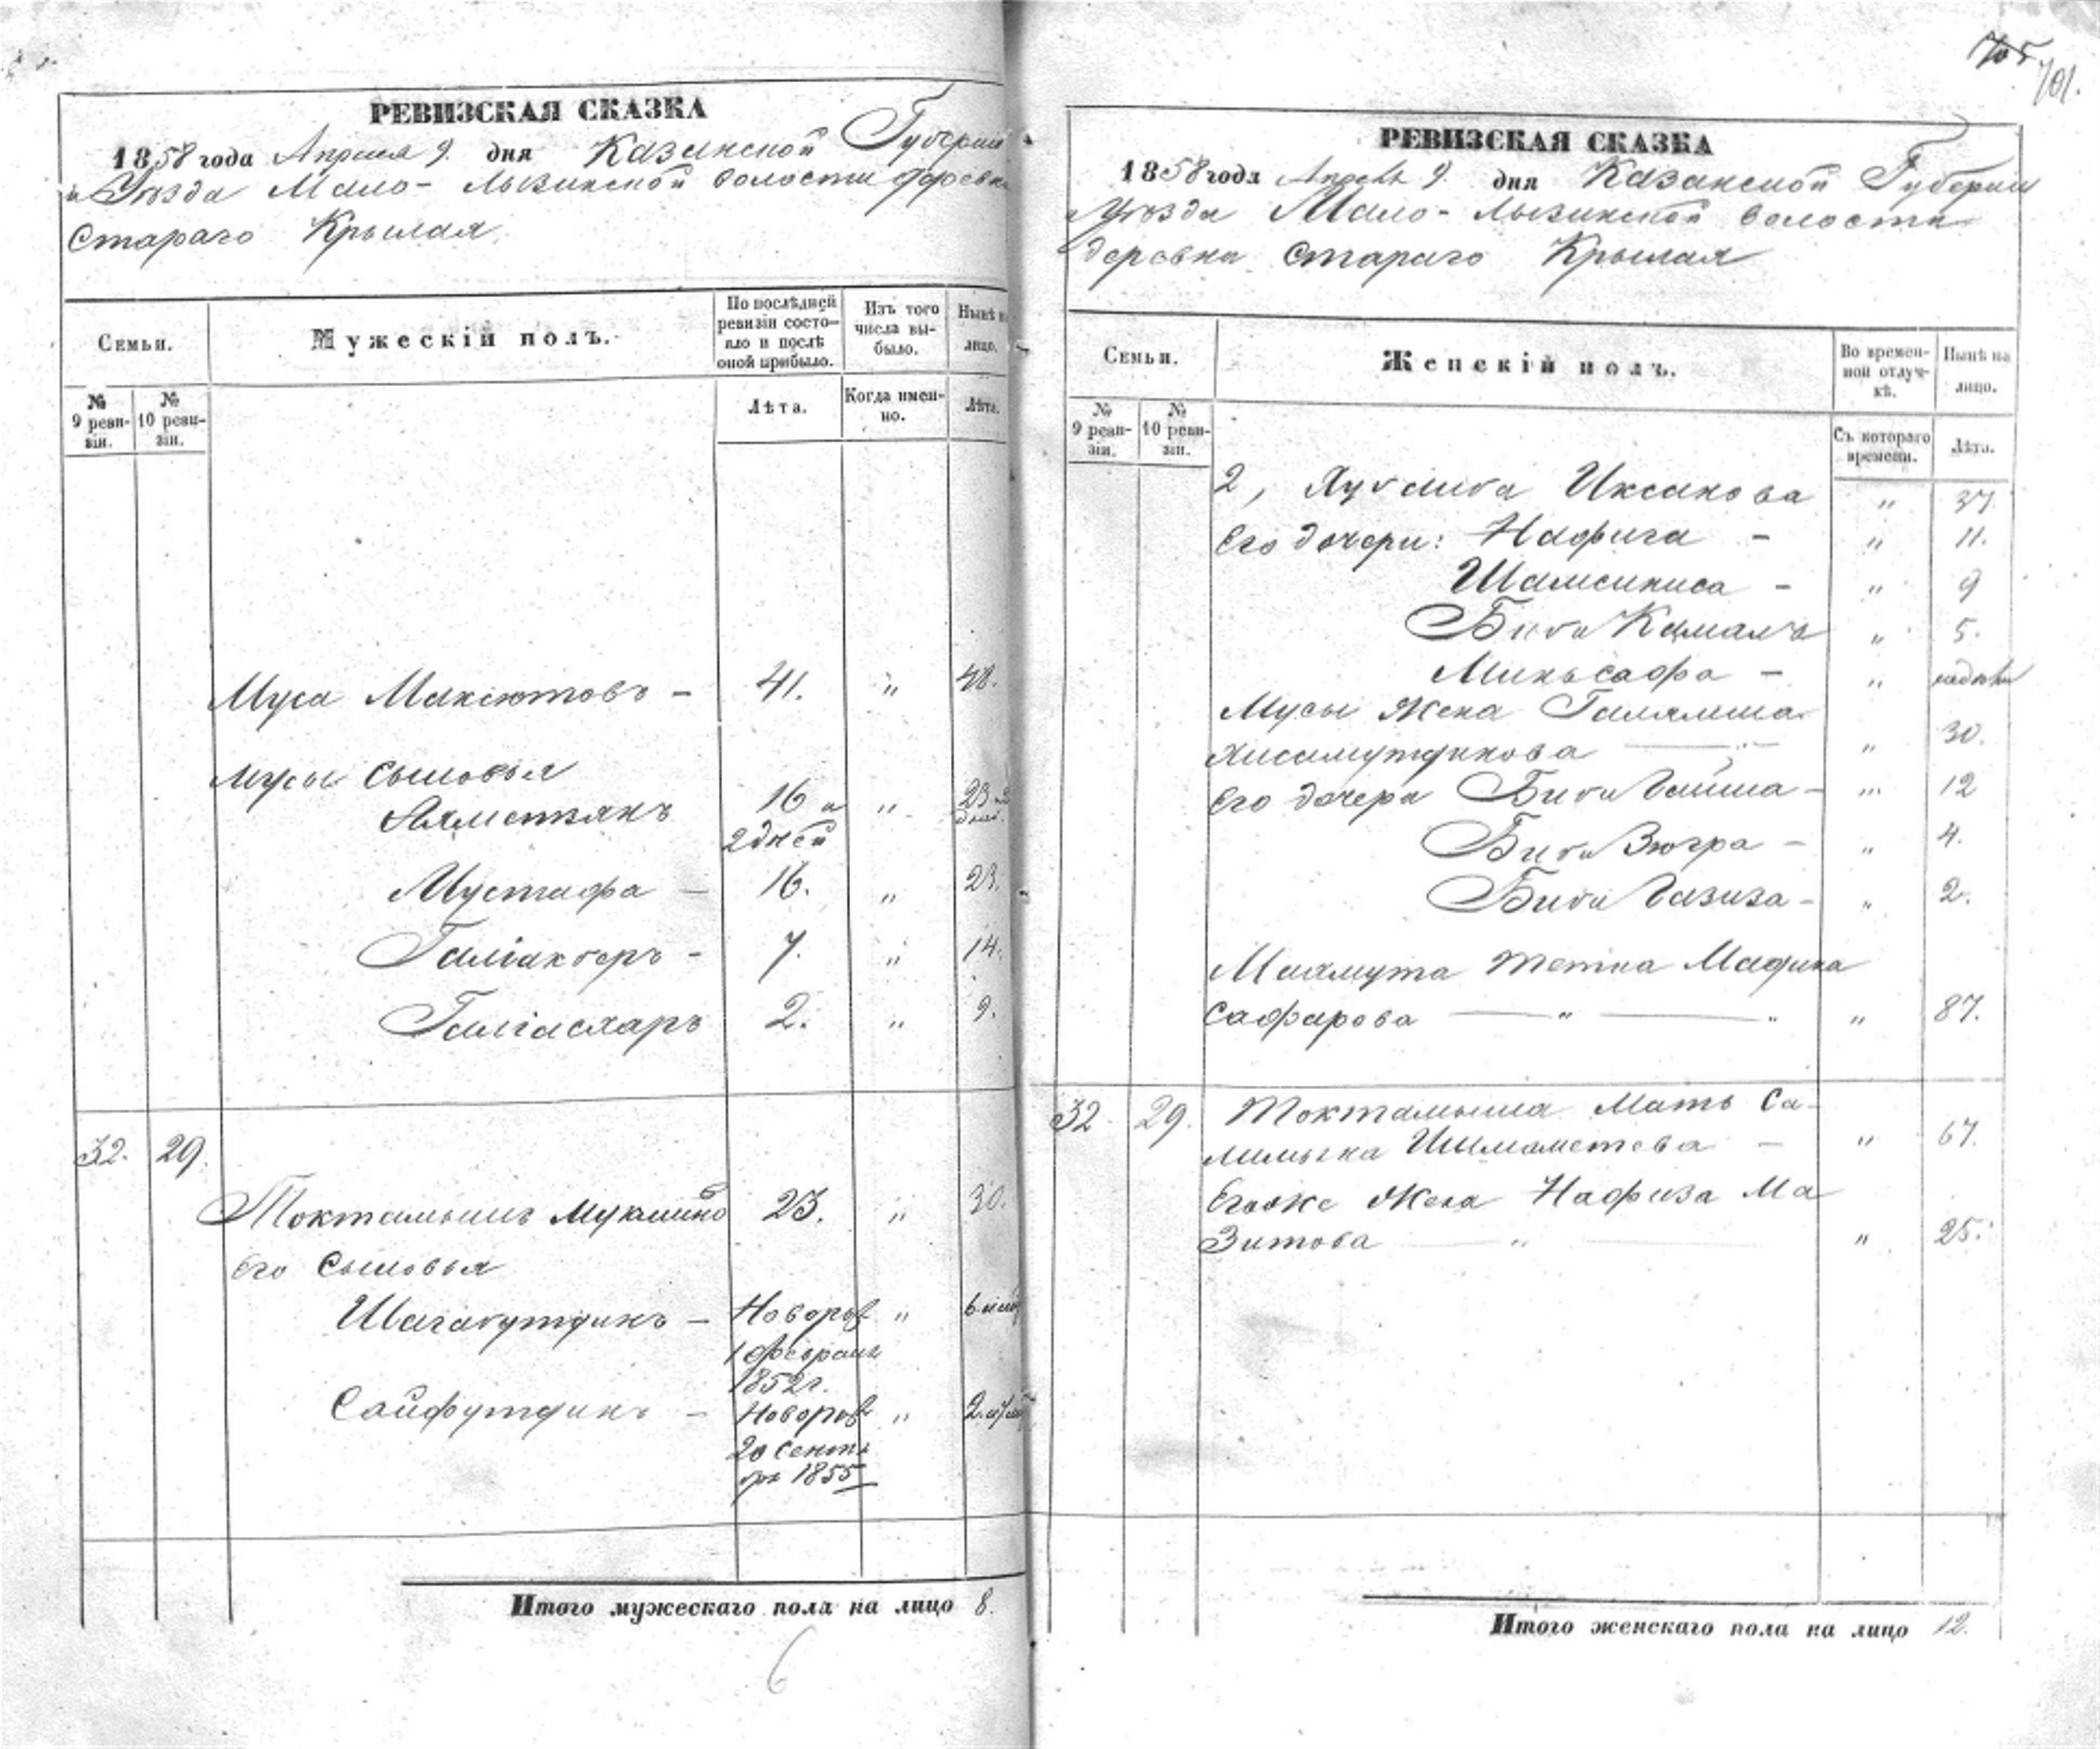 705
701.
РЕВИЗСКАЯ СКАЗКА
1858 года Апреля 9. дня Казанской Губерніи
Уѣзда Мало-Лызинской волости деревни
Стараго Крылая
Семьи.
Мужескій полъ.
По послѣдней ревизіи состояло и послѣ оной прибыло.
Изъ того числа выбыло.
Нынѣ на лицо.
№ 9 ревизіи.
№ 10 ревизіи.
Лѣта.
Когда именно.
Лѣта.
Муса Максютовъ - 41. " 48.
Мусы Сыновья
Ахметзянъ 16 и " 23
2 дней
Мустафа - 16. " 23.
Галіакберъ - 7. " 14.
Галіасхаръ 2. " 9.
32. 29.
Токтамышъ 23. " 30.
Его Сыновья
Шагабутдинъ - Новорож "
1 февраля
1852 г.
Сайфутдинъ - Новорож "
20 Сентя
бря 1855
Итого мужескаго пола на лицо 8.
6
РЕВИЗСКАЯ СКАЗКА
1858 года Апреля 9. дня Казанской Губерніи
Уѣзда Мало-Лызинской волости
деревни Стараго Крылая
Семьи.
Женскій полъ.
Во временной отлучкѣ.
Нынѣ на лицо.
№ 9 ревизіи.
№ 10 ревизіи.
Съ котораго времени.
Лѣта.
2, Иксанова " 37
Его дочери: Нафига - " 11.
Шамсиниса - " 9
Биби Камалъ " 5.
Миньсафа - "
Мусы Жена
Хисамутдинова " 30.
Его дочери Биби Гайша - " 12
Биби Зюгра - " 4.
Биби Газиза - " 2.
Махмута тетка Мафика
Сафарова " " " 87.
32 29. Токтамыша Мать Са-
- " 67.
Егоже Жена Нафиза Ма
Зитова " " 25.
Итого женскаго пола на лицо 12.